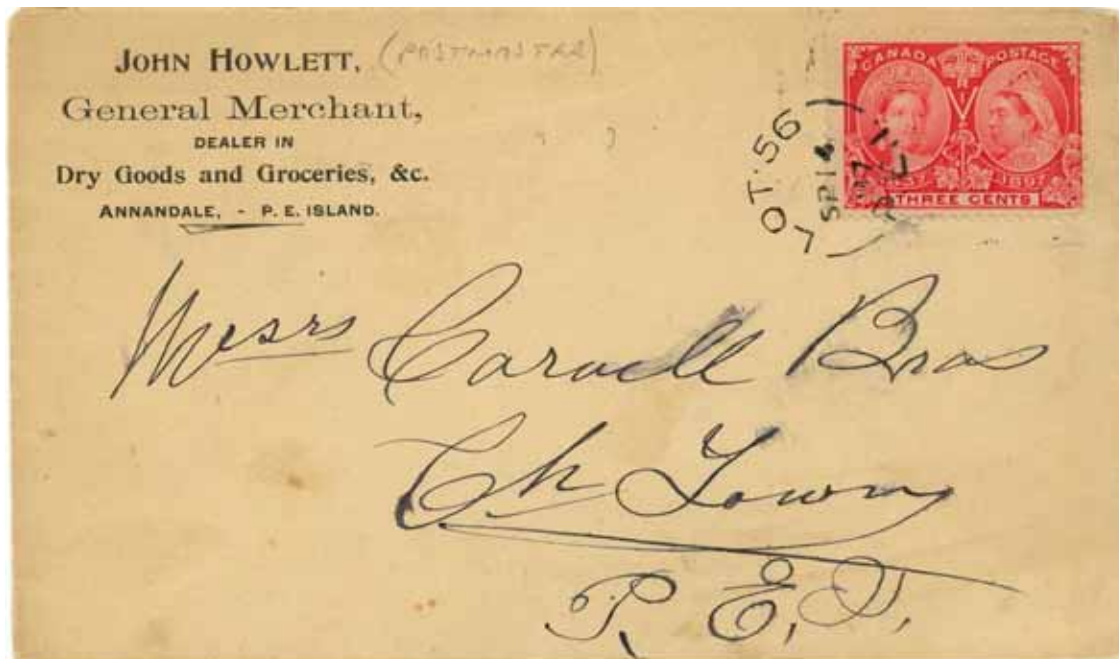 JOHN HOWLETT, (POSTMASTER)
General Merchant,
DEALER IN
Dry Goods and Groceries, &c.
ANNANDALE, - P. E. ISLAND.
CANADA POSTAGE
1837 1897
THREE CENTS
LOT. 56
SP 14
97
P.E.I.
Messrs Carvell Bros
Ch Town
P. E. I.